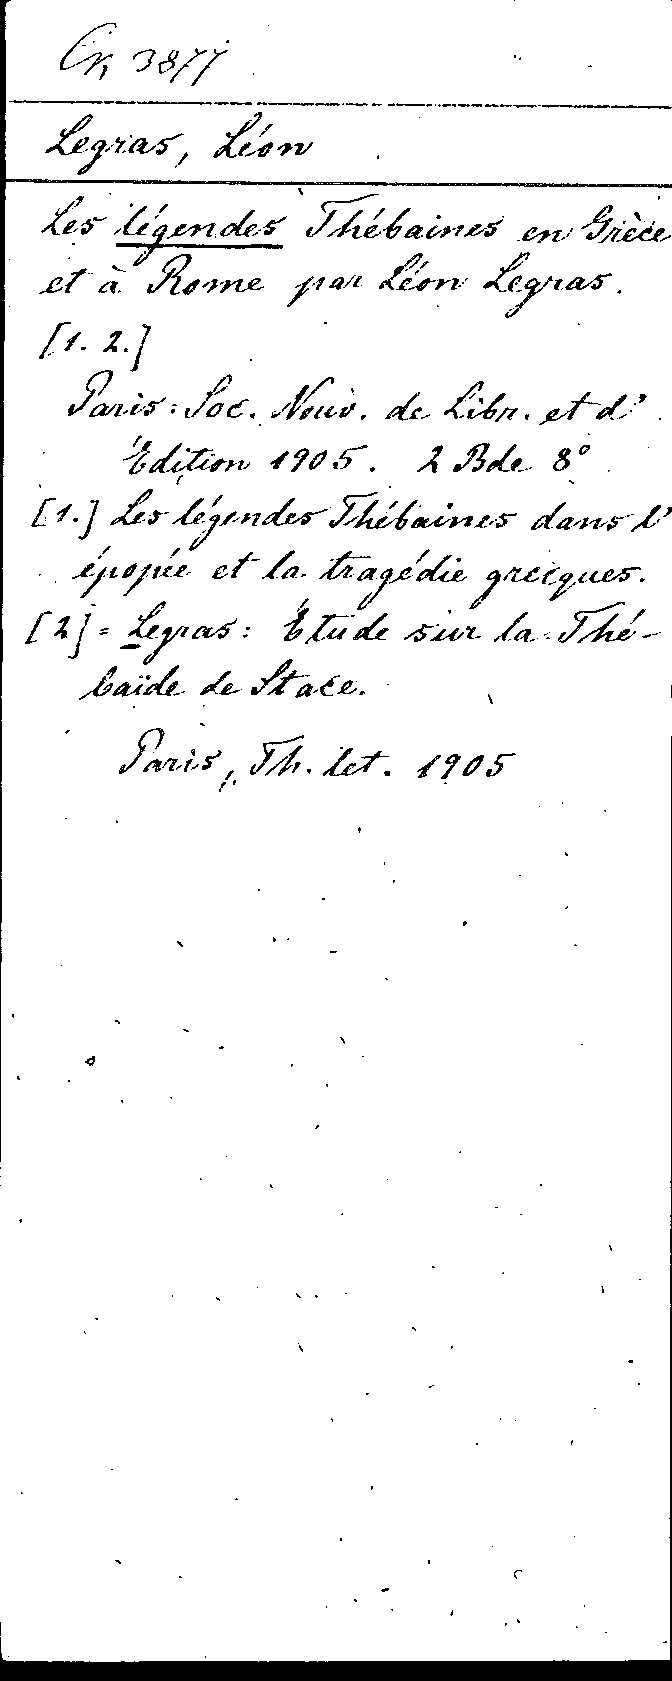 Cn 3877
Legras, Léon
Les légendes Thébaines en Grèce
et à Rome par Léon Legras.
[1. 2.]
Paris: Soc. Nouv. de Libr. et d'
Édition 1905. 2 Bde 8°
[1.] Les légendes Thébaines dans l'
épopée et la tragédie grecques.
[2] = Legras: Étude sur la Thé-
baïde de Stace.
Paris, Th. let. 1905